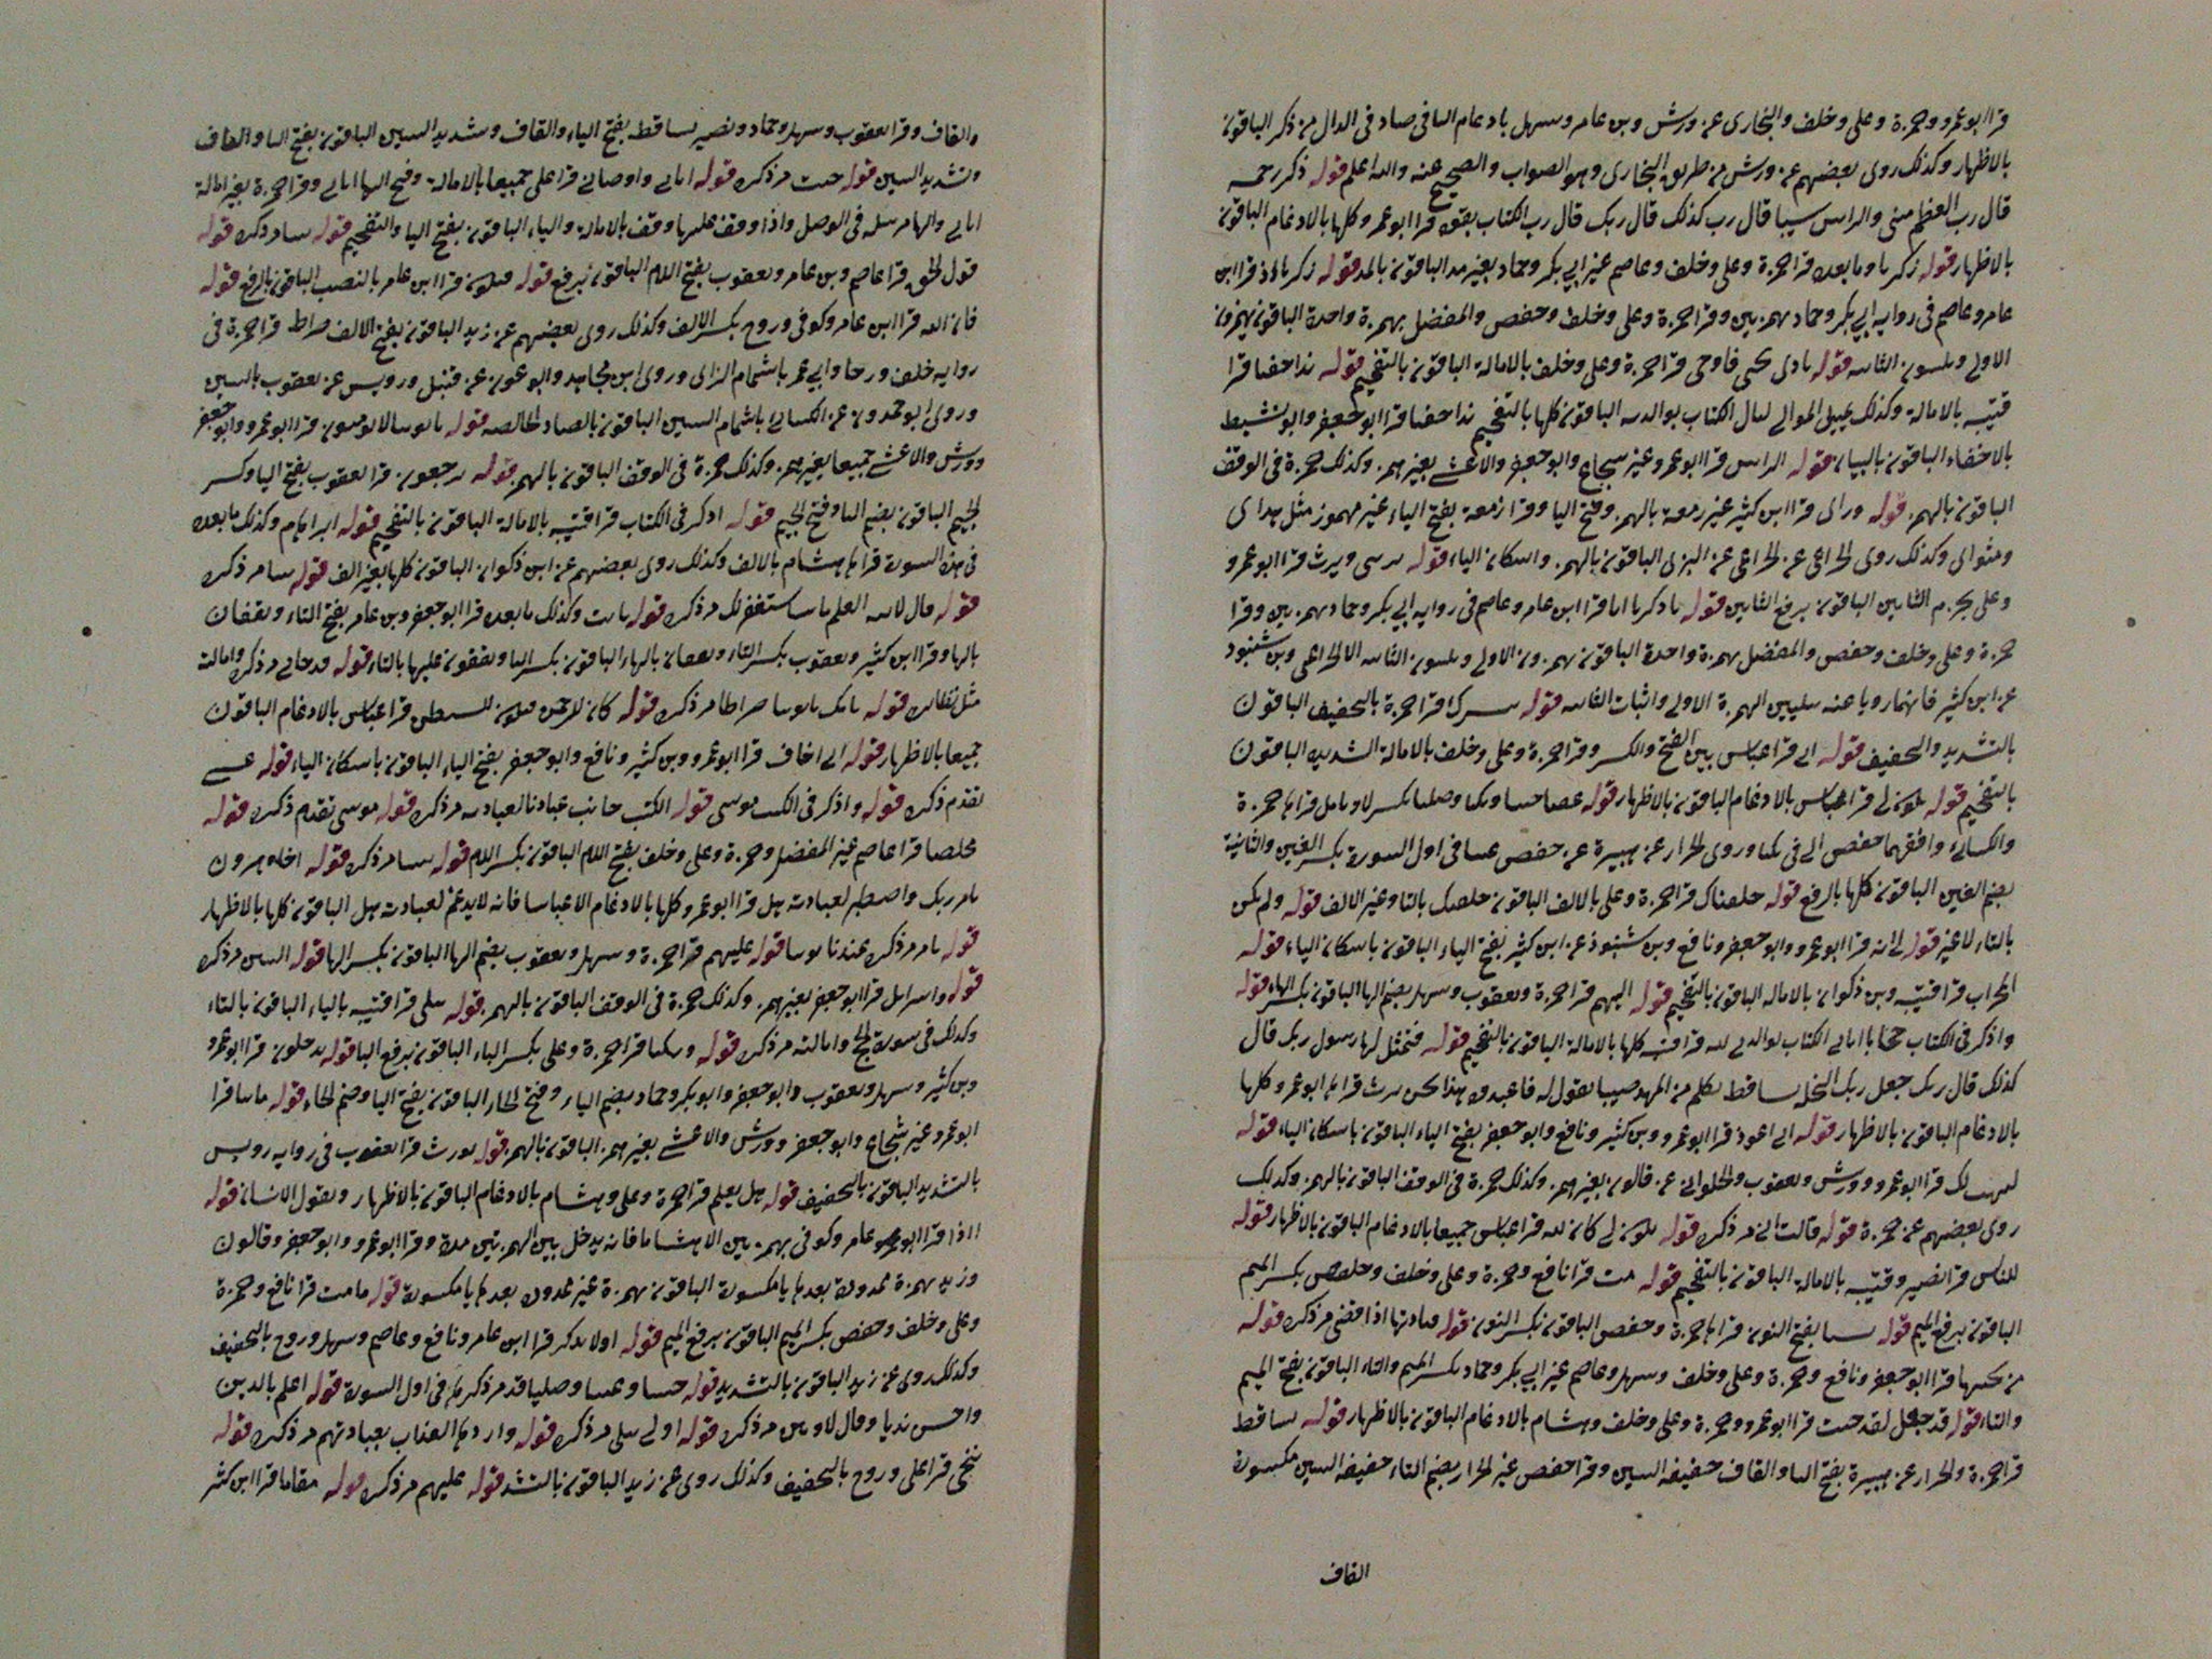 قرا ابو عمرو وحمزة وعلى وخلف والبخارى عن ورش وبن عامر وسهل بادغام الها فى صاد فى الدال من ذكر الباقون
بالاظهار وكذلك روى بعضهم عن ورش من طريق البخارى وهو الصواب والصحيح عنه والله اعلم قوله ذكر رحمه
قال رب العظم منى والراس سيبا قال رب كذلك قال ربك قال رب الكتاب بقوه قرا ابو عمرو كلها بالادغام الباقون
بالاظهار قوله زكريا وما بعده قرا حمزة وعلى وخلف وعاصم غير ابى بكر وحماد بغير مد الباقون بالمد قوله زكريا اذ قرا ابن
عامر وعاصم فى روايه ابى بكر وحماد بهمزتين وقرا حمزة وعلى وخلف وحفص والمفضل بهمزة واحدة الباقون يهمزون
الاولى ويلينون الثانيه قوله نادى يحيى فاوحى قرا حمزة وعلى وخلف بالامالة الباقون بالتفخيم قوله ندا خفيا قرا
قتيبه بالامالة وكذلك الباقون كلها بالتفخيم ندا خفيا قرا ابو جعفر وابو نشيط
بالاخفاء الباقون بالبيان قوله الراس قرا ابو عمرو غير شجاع وابو جعفر والاعشى بغير همز وكذلك حمزة فى الوقف
الباقون بالهمز قوله وراى قرا ابن كثير غير زمعة بالهمز وفتح اليا وقرا زمعة بفتح الياء غير مهموز مثل هداى
ومثواى وكذلك روى الخزاعى عن البزى الباقون بالهمز واسكان الياء قوله يرثنى ويرث قرا ابو عمرو
وعلى بجزم الثاين الباقون برفع الثاين قوله يا زكريا انا قرا ابن عامر وعاصم فى روايه ابى بكر وحماد بهمزتين وقرا
حمزة وعلى وخلف وحفص والمفضل بهمزة واحدة الباقون يهمزون الاولى ويلينون الثانيه الا الخزاعى وبن شنبوذ
عن ابن كثير فانهما رويا عنه تليين الهمزة الاولى واثبات الثانيه قوله قرا حمزة بالتخفيف الباقون
بالتشديد والتخفيف قوله انى قرا عباس بين الفتح والكسر وقرا حمزة وعلى وخلف بالامالة الشديده الباقون
بالتفخيم قوله يكون لى قرا عباس بالادغام الباقون بالاظهار قوله عتيا جثيا وبكيا وصليا بكسر الاوايل قراها حمزة
والكسائى وافقهما حفص الا فى بكيا وروى الخراز عن هبيرة عن حفص عتيا فى اول السورة بكسر العين والثانية
بضم العين الباقون كلها بالرفع قوله خلقناك قرا حمزة وعلى بالالف الباقون خلقتك بالتا وغير الالف قوله ولم تكن
بالتاء لا غير قوله لى ايه قرا ابو عمرو وابو جعفر ونافع وبن شنبوذ عن ابن كثير بفتح الياء الباقون باسكان الياء قوله
المحراب قرا قتيبه وبن ذكوان بالاماله الباقون بالتفخيم قوله اليهم قرا حمزة ويعقوب وسهل بضم الها الباقون بكسر الهاء قوله
واذكر فى الكتاب حجابا اتانى الكتاب بوالدتى لله قرا قتيبه كلها بالامالة الباقون بالتفخيم قوله فتمثل لها رسول ربك قال
كذلك قال ربك جعل ربك النخلة تساقط نكلم من المهد صبيا نقول له فاعبدوه هذا نحن نرث قراها ابو عمرو كلها
بالادغام الباقون بالاظهار قوله انى اعوذ قرا ابو عمرو وبن كثير ونافع وابو جعفر بفتح الياء الباقون باسكان الياء قوله
ليهب لك قرا ابو عمرو وورش ويعقوب والحلوانى عن قالون بغير همز وكذلك حمزة فى الوقف الباقون بالهمز وكذلك
روى بعضهم عن حمزة قوله قالت انى مر ذكره قوله يكون لى كان لله قرا عباس جميعا بالادغام الباقون بالاظهار قوله
للناس قرا نصير وقتيبه بالامالة الباقون بالتفخيم قوله مت قرا نافع وحمزة وعلى وخلف وحفص بكسر الميم
الباقون برفع الميم قوله نسيا بفتح النون قراها حمزة وحفص الباقون بكسر النون قوله فنادتها اذا قضى مر ذكره قوله
من تحتها قرا ابو جعفر ونافع وحمزة وعلى وخلف وسهل وعاصم غير ابى بكر وحماد بكسر الميم والتاء الباقون بفتح الميم
والتاء قوله قد جعل لقد جئت قرا ابو عمرو وحمزة وعلى وخلف وهشام بالادغام الباقون بالاظهار قوله تساقط
قرا حمزة والخراز عن هبيرة بفتح التا والقاف خفيفه السين وقرا حفص غير الخراز بضم التاء خفيفه السين مكسورة
القاف
والقاف وقرا يعقوب وسهل وحماد ونصير يساقط بفتح الياء والقاف وتشديد السين الباقون بفتح التا والقاف
وتشديد السين قوله جئت مر ذكره قوله اتانى واوصانى قرا على جميعا بالامالة وفتح الها اتانى وقرا حمزة بغير امالة
اتانى والها مرسله فى الوصل واذا وقف عليها وقف بالامالة والياء الباقون بفتح اليا والتفخيم قوله نبيا مر ذكره قوله
قول الحق قرا عاصم وبن عامر ويعقوب بفتح اللام الباقون برفع قوله فيكون قرا ابن عامر بالنصب الباقون بالرفع قوله
فان الله قرا ابن عامر وكوفى وروح بكسر الالف وكذلك روى بعضهم عن زيد الباقون بفتح الالف صراط قرا حمزة فى
روايه خلف ورجا وابى عمر باشمام الزاى وروى ابن مجاهد وابو عون عن قنبل ورويس عن يعقوب بالسين
وروى ابو حمدون عن الكسائى باشمام السين الباقون بالصاد الخالصه قوله قرا ابو عمرو وابو جعفر
وورش والاعشى جميعا بغير همز وكذلك حمزة فى الوقف الباقون بالهمز قوله يرجعون قرا يعقوب بفتح اليا وكسر
الجيم الباقون بضم اليا وفتح الجيم قوله اذكر فى الكتاب قرا قتيبه بالامالة الباقون بالتفخيم قوله ابراهام وكذلك ما بعده
فى هذه السورة قرا هشام بالالف وكذلك روى بعضهم عن ابن ذكوان الباقون كلها بغير الف قوله نبيا مر ذكره
قوله قال لابيه العلم ما ساستغفر لك مر ذكره قوله يابت وكذلك ما بعده قرا ابو جعفر وبن عامر بفتح التاء ويقفان
بالها وقرا ابن كثير ويعقوب بكسر التاء ويقفان بالهاء الباقون بكسر التا ويقفون عليها بالتاء قوله قد جانى مر ذكره وامالته
مثل نظائره قوله صراطا مر ذكره قوله كان للرحمن فيكون للشيطن قرا عباس بالادغام الباقون
جميعا بالاظهار قوله انى اخاف قرا ابو عمرو وبن كثير ونافع وابو جعفر بفتح الياء الباقون باسكان الياء قوله عسى
تقدم ذكره قوله واذكر فى الكتب موسى قوله الكتب جانب عبادنا لعبادته مر ذكره قوله موسى تقدم ذكره قوله
مخلصا قرا عاصم غير المفضل وحمزة وعلى وخلف بفتح اللام الباقون بكسر اللام قوله نبيا مر ذكره قوله اخاه هرون
بامر ربك واصطبر لعبادته هل قرا ابو عمرو كلها بالادغام الا عباسا فانه لا يدغم لعبادته هل الباقون كلها بالاظهار
قوله يامر مر ذكره قوله عليهم قرا حمزة وسهل ويعقوب بضم الها الباقون بكسر الها قوله النبين مر ذكره
قوله واسرايل قرا ابو جعفر بغير همز وكذلك حمزة فى الوقف الباقون بالهمز قوله يتلى قرا قتيبه بالياء الباقون بالتاء
وكذلك فى سورة الحج وامالته مر ذكره قوله وبكيا قرا حمزة وعلى بكسر الباء الباقون برفع البا قوله يدخلون قرا ابو عمرو
وبن كثير وسهل ويعقوب وابو جعفر وابو بكر وحماد بضم الياء وفتح الخاء الباقون بفتح اليا وضم الخاء قوله ماتيا قرا
ابو عمرو غير شجاع وابو جعفر وورش والاعشى بغير همز الباقون بالهمز قوله نورث قرا يعقوب فى روايه رويس
بالتشديد الباقون بالتخفيف قوله هل تعلم قرا حمزة وعلى وهشام بالادغام الباقون بالاظهار ويقول الانسان قوله
ااذا قرا عامر وكوفى بهمزتين الا هشاما فانه يدخل بين الهمزتين مدة وقرا ابو عمرو وابو جعفر وقالون
وزيد بهمزة ممدودة بعدها يا مكسورة الباقون بهمزة غير ممدوده بعدها يا مكسورة قوله ما مت قرا نافع وحمزة
وعلى وخلف وحفص بكسر الميم الباقون برفع الميم قوله اولا يذكر قرا ابن عامر ونافع وعاصم وسهل وروح بالتخفيف
وكذلك روى عن زيد الباقون بالتشديد قوله جثيا وعتيا وصليا قد مر ذكرها فى اول السورة قوله اعلم بالذين
واحسن نديا وقال لاوتين مر ذكره قوله اولى تتلى مر ذكره قوله واردها العذاب بعبادتهم مر ذكره قوله
ننجى قرا على وروح بالتخفيف وكذلك روى عن زيد الباقون بالتشد قوله عليهم مر ذكره قوله مقاما قرا ابن كثير